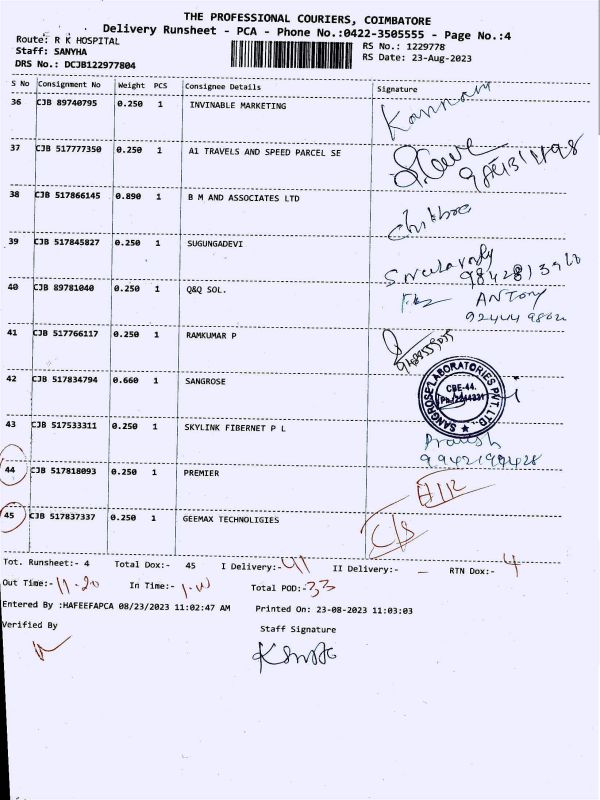 THE PROFESSIONAL COURIERS, COIMBATORE
Delivery Runsheet - PCA - Phone No.:0422-3505555 - Page No.:4
Route: R K HOSPITAL
Staff: SANYHA
DRS No.: DCJB122977804
RS No.: 1229778
RS Date: 23-Aug-2023
S No Consignment No Weight PCS Consignee Details Signature
36 CJB 89740795 0.250 1 INVINABLE MARKETING
37 CJB 517777350 0.250 1 A1 TRAVELS AND SPEED PARCEL SE
38 CJB 517866145 0.890 1 B M AND ASSOCIATES LTD
39 CJB 517845827 0.250 1 SUGUNGADEVI
40 CJB 89781040 0.250 1 Q&Q SOL. ANTony
41 CJB 517766117 0.250 1 RAMKUMAR P
42 CJB 517834794 0.660 1 SANGROSE
SANGROSE LABORATORIES PVT. LTD.
CBE-44.
43 CJB 517533311 0.250 1 SKYLINK FIBERNET P L
44 CJB 517818093 0.250 1 PREMIER
45 CJB 517837337 0.250 1 GEEMAX TECHNOLIGIES C/S
Tot. Runsheet:- 4 Total Dox:- 45 I Delivery:- 41 II Delivery:- - RTN Dox:- 4
Out Time:- 11-20 In Time:- Total POD:- 33
Entered By :HAFEEFAPCA 08/23/2023 11:02:47 AM Printed On: 23-08-2023 11:03:03
Verified By Staff Signature